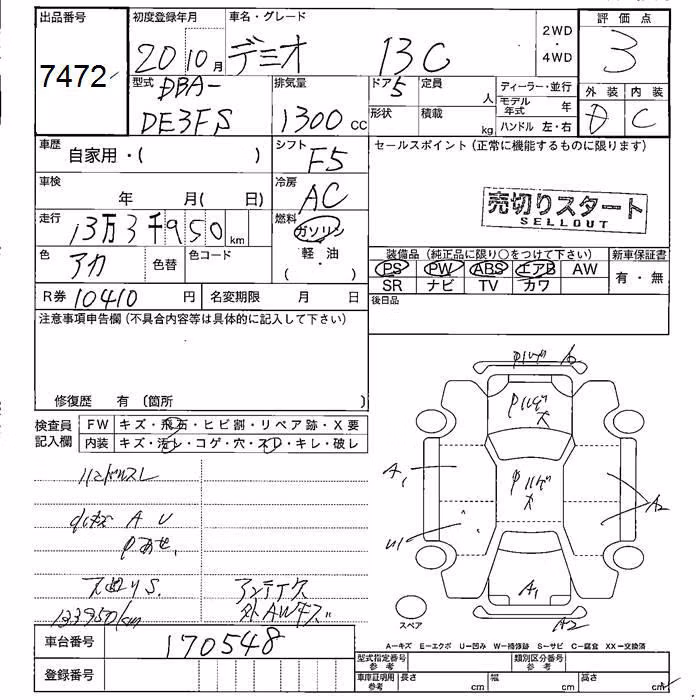 出品番号 初度登録年月 車名・グレード 2WD ・ 4WD 評価点
7472 20 10月 デミオ 13C 3
型式 DBA- 排気量 ドア 5 定員 人 ディーラー・並行 外装 内装
DE3FS 1300cc 形状 積載 kg モデル年式 年 D C
ハンドル 左・右
車歴 自家用・( ) シフト F5 セールスポイント(正常に機能するものに限ります)
車検 年 月( 日) 冷房 AC
売切りスタート
SELLOUT
走行 13万3千950km 燃料 ガソリン
・
軽・油
色 アカ 色替 色コード 装備品(純正品に限り○をつけて下さい) 新車保証書
PS PW ABS エアB AW 有・無
SR ナビ TV カワ
R券 10410円 名変期限 月 日 後日品
注意事項申告欄(不具合内容等は具体的に記入して下さい)
修復歴 有(箇所 )
検査員記入欄 FW キズ・飛石・ヒビ割・リペア跡・X要
内装 キズ・汚レ・コゲ・穴・スレ・キレ・破レ
ハンドルスレ
A U
S.
133950km 外AWキズ
A2
A1
A2
A1
A2
スペア
A=キズ E=エクボ U=凹み W=補修跡 S=サビ C=腐食 XX=交換済
車台番号 170548 型式指定番号 参考 類別区分番号 参考
登録番号 車庫証明用 参考 長さ cm 幅 cm 高さ cm